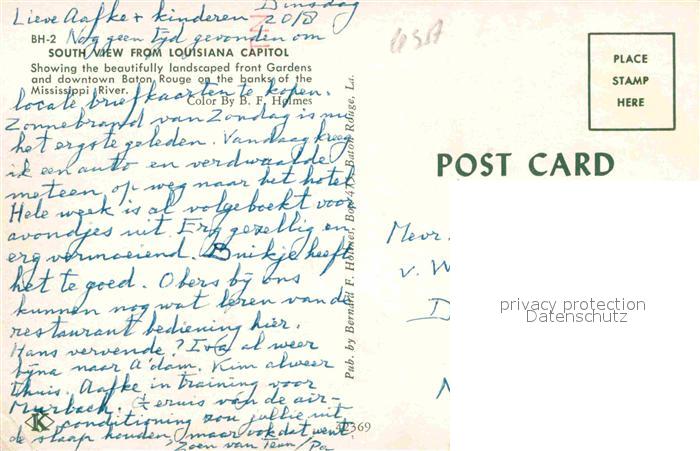 Dinsdag
Lieve Aafke + kinderen 20/8
BH-2 Nog geen tijd gevonden om
SOUTH VIEW FROM LOUISIANA CAPITOL
Showing the beautifully landscaped front Gardens
and downtown Baton Rouge on the banks of the
Mississippi River.
Color By B. F. Holmes
locale briefkaarten te kopen.
Zonnebrand van Zondag is nu
het ergste geleden. Vandaag kreeg
ik een auto en verdwaalde
meteen op weg naar het hotel
Hele week is al volgeboekt voor
avondjes uit. Erg gezellig en
erg vermoeiend. Buikje heeft
het te goed. Obers bij ons
kunnen nog wat leren van de
restaurant bediening hier.
Hans vervende? al weer
bijna naar A'dam. Kim alweer
thuis. Aafke in training voor
Murbach. geruis van de air-
conditioning zou jullie uit
de slaap houden, maar ook dat went
Zoen van Teun/Pa
42369
K
Pub. by Bernard F. Holmes, Box 473, Baton Rouge, La.
PLACE
STAMP
HERE
POST CARD
Mevr.
v. W
D
privacy protection
Datenschutz